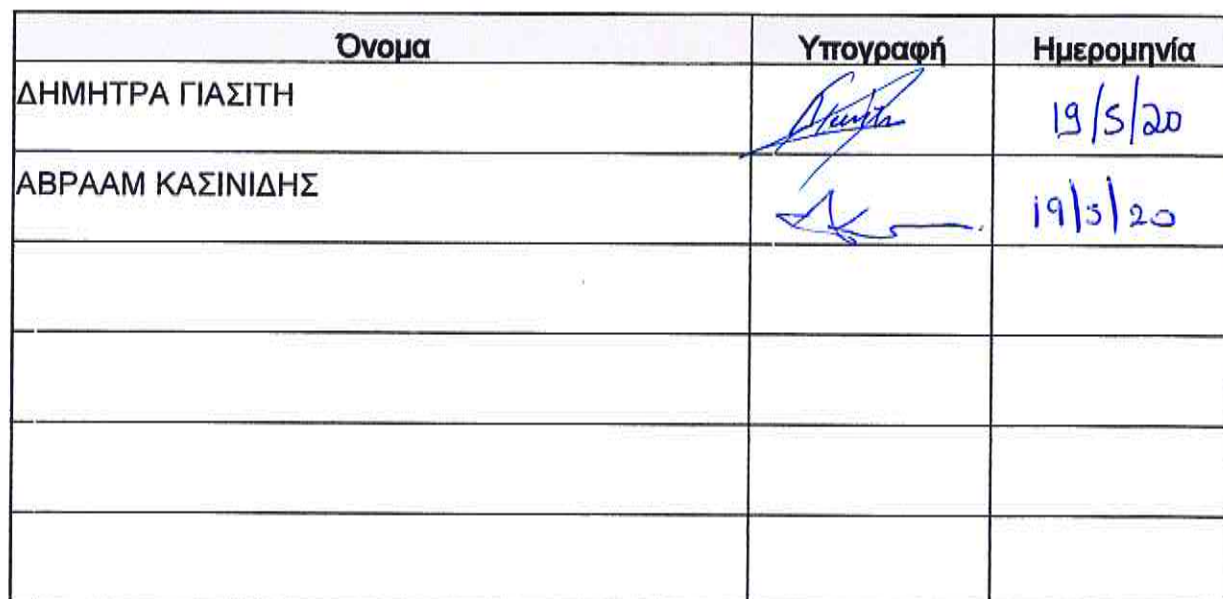 Όνομα Υπογραφή Ημερομηνία
ΔΗΜΗΤΡΑ ΓΙΑΣΙΤΗ 19/5/20
ΑΒΡΑΑΜ ΚΑΣΙΝΙΔΗΣ 19/5/20